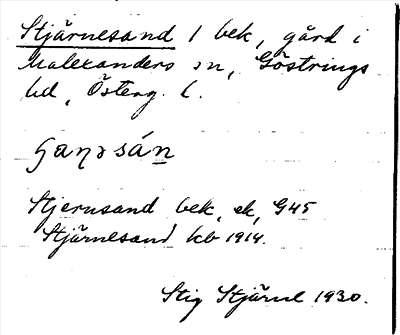 Stjärnesand 1 bek, gård i
Malexanders sn, Göstrings
hd, Österg. l.
Stjernsand bek, ek, G45
Stjärnesand kb 1914.
Stig Stjärne 1930.